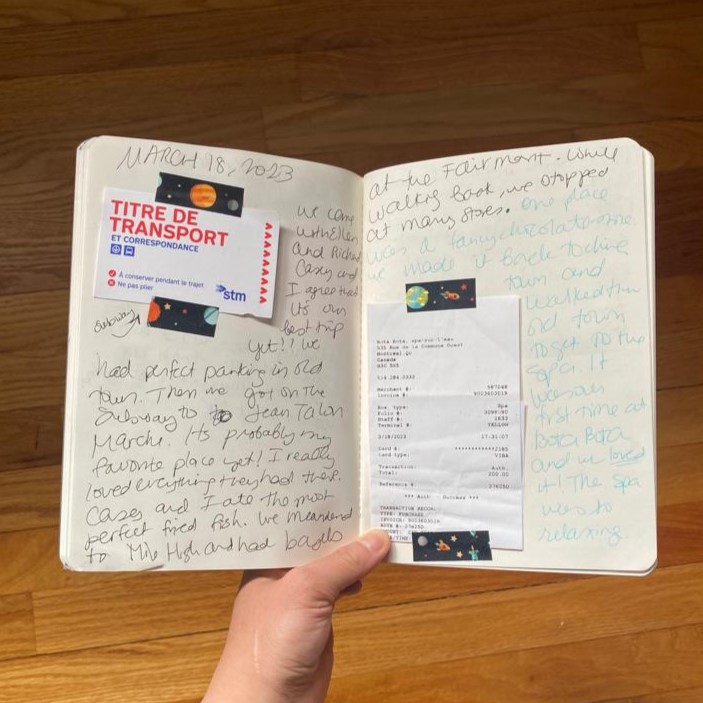 MARCH 18, 2023
TITRE DE
TRANSPORT
ET CORRESPONDANCE
À conserver pendant le trajet
Ne pas plier
stm
Subway
we came
with Ellen
and Richard
Casey and
I agree that
its our
best trip
yet!! We
had perfect parking in old
town. Then we got on the
Subway to Jean Talon
Marche. Its probably my
favorite place yet! I really
loved everything they had there.
Casey and I ate the most
perfect fried fish. We meandered
to Mile High and had bagels
at the Fairmont. While
walking back, we stopped
at many stores. One place
was a fancy chocolate one.
we made it back to
town and
walked thru
old town
to get to the
spa. It
was our
first time at
Bota Bota
and we loved
it! The spa
was so
relaxing.
Bota Bota, spa-sur-l'eau
535 Rue de la Commune Ouest
Montreal Qc
Canada
514.284.0333
Merchant #:
Invoice #:
Rvc. type: Spa
Folio #:
Staff #:
Terminal #: YELLOW
3/18/2023 17:31:07
Card #:
Card type: VISA
Transaction: Auth.
Total: 200.00
Reference #: 276250
*** Auth - Success ***
TRANSACTION RECORD
TYPE: PURCHASE